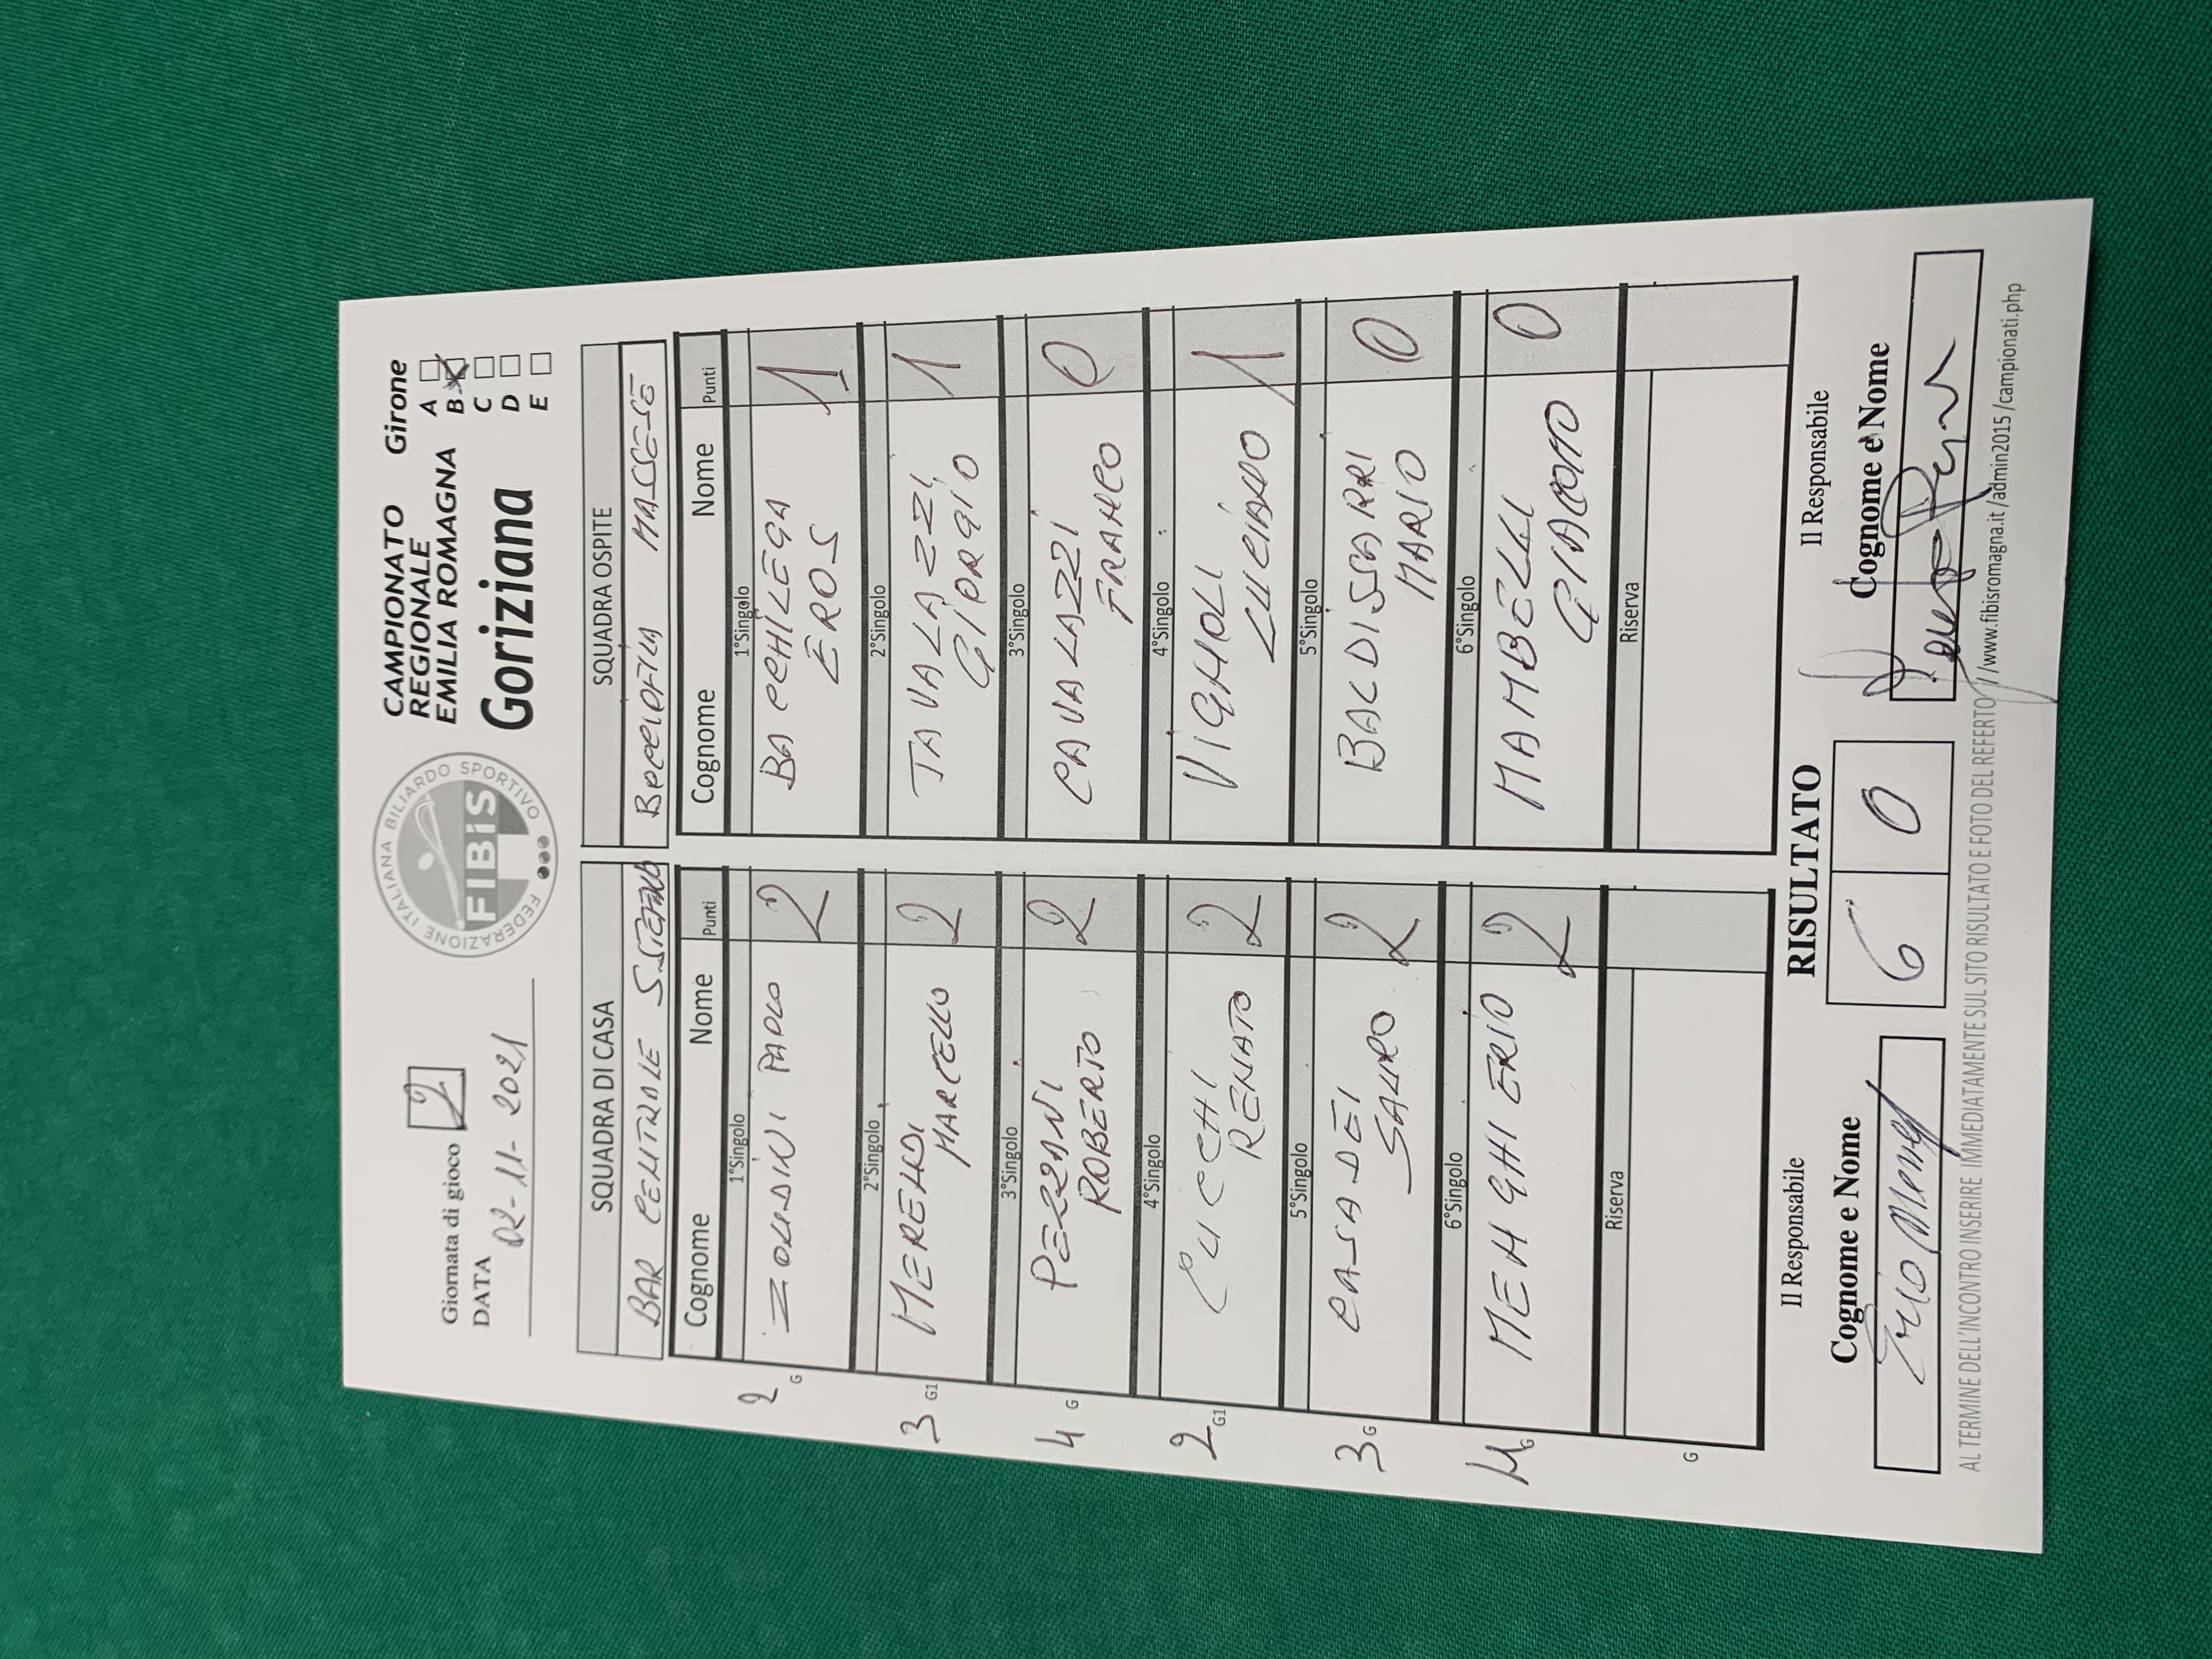 Giornata di gioco 2
DATA 02-11-2021
FEDERAZIONE ITALIANA BILIARDO SPORTIVO
FIBiS
CAMPIONATO
REGIONALE
EMILIA ROMAGNA
Goriziana
Girone
A
B X
C
D
E
SQUADRA DI CASA
BAR CENTRALE S.STEFANO
Cognome Nome Punti
1°Singolo
2 G ZONDINI PAOLO 2
2°Singolo
3 G1 MERENDI MARCELLO 2
3°Singolo
4 G PEZZANI ROBERTO 2
4°Singolo
2 G1 CUCCHI RENATO 2
5°Singolo
3 G CASADEI SAURO 2
6°Singolo
4 G MENGHI ERIO 2
Riserva
G
SQUADRA OSPITE
BOCCIOFILA MASSESE
Cognome Nome Punti
1°Singolo
BACCHILEGA EROS 1
2°Singolo
TAVALAZZI GIORGIO 1
3°Singolo
CAVALAZZI FRANCO 0
4°Singolo
VIGNOLI LUCIANO 1
5°Singolo
BALDISSARRI MARIO 0
6°Singolo
MAMBELLI GIACOMO 0
Riserva
Il Responsabile
Cognome e Nome
Erio Menghi
RISULTATO
6 0
Il Responsabile
Cognome e Nome
AL TERMINE DELL'INCONTRO INSERIRE IMMEDIATAMENTE SUL SITO RISULTATO E FOTO DEL REFERTO //www.fibisromagna.it/admin2015/campionati.php